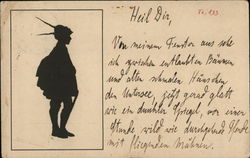 Heil Dir,
Von meinem Fenster aus sehe
ich zwischen entlaubten Bäumen
und alten schmalen Häuschen
den Untersee, jetzt gerad glatt
wie ein dunkler Spiegel, vor einer
Stunde wild wie durchgehende Pferde
mit fliegenden Mähnen.